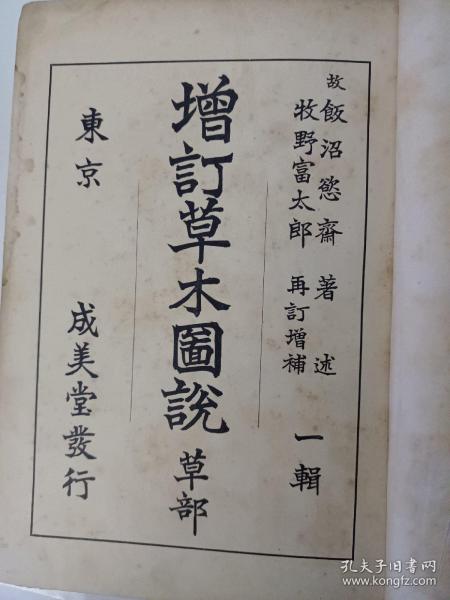 故 飯沼慾齋 著述
牧野富太郎 再訂增補
一輯
增訂草木圖説 草部
東京 成美堂發行
孔夫子旧书网
www.kongfz.com